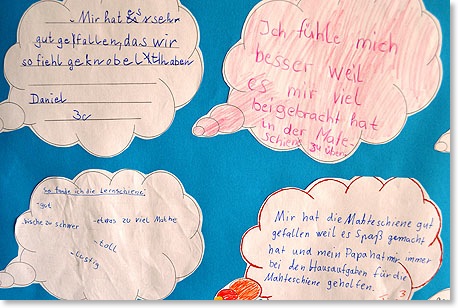 Mir hat es sehr
gut gefallen, das wir
so fiehl geknobelt haben
Daniel
3c
Ich fühle mich
besser weil
es mir viel
beigebracht hat
in der Mate-
schiene zu üben
So finde ich die Lernschiene:
-gut
-bische zu schwer
-etwas zu viel Mathe
-toll
-lustig
Mir hat die Mahteschiene gut
gefallen weil es Spaß gemacht
hat und mein Papa hat mir immer
bei den Hausaufgaben für die
Mahteschiene geholfen.